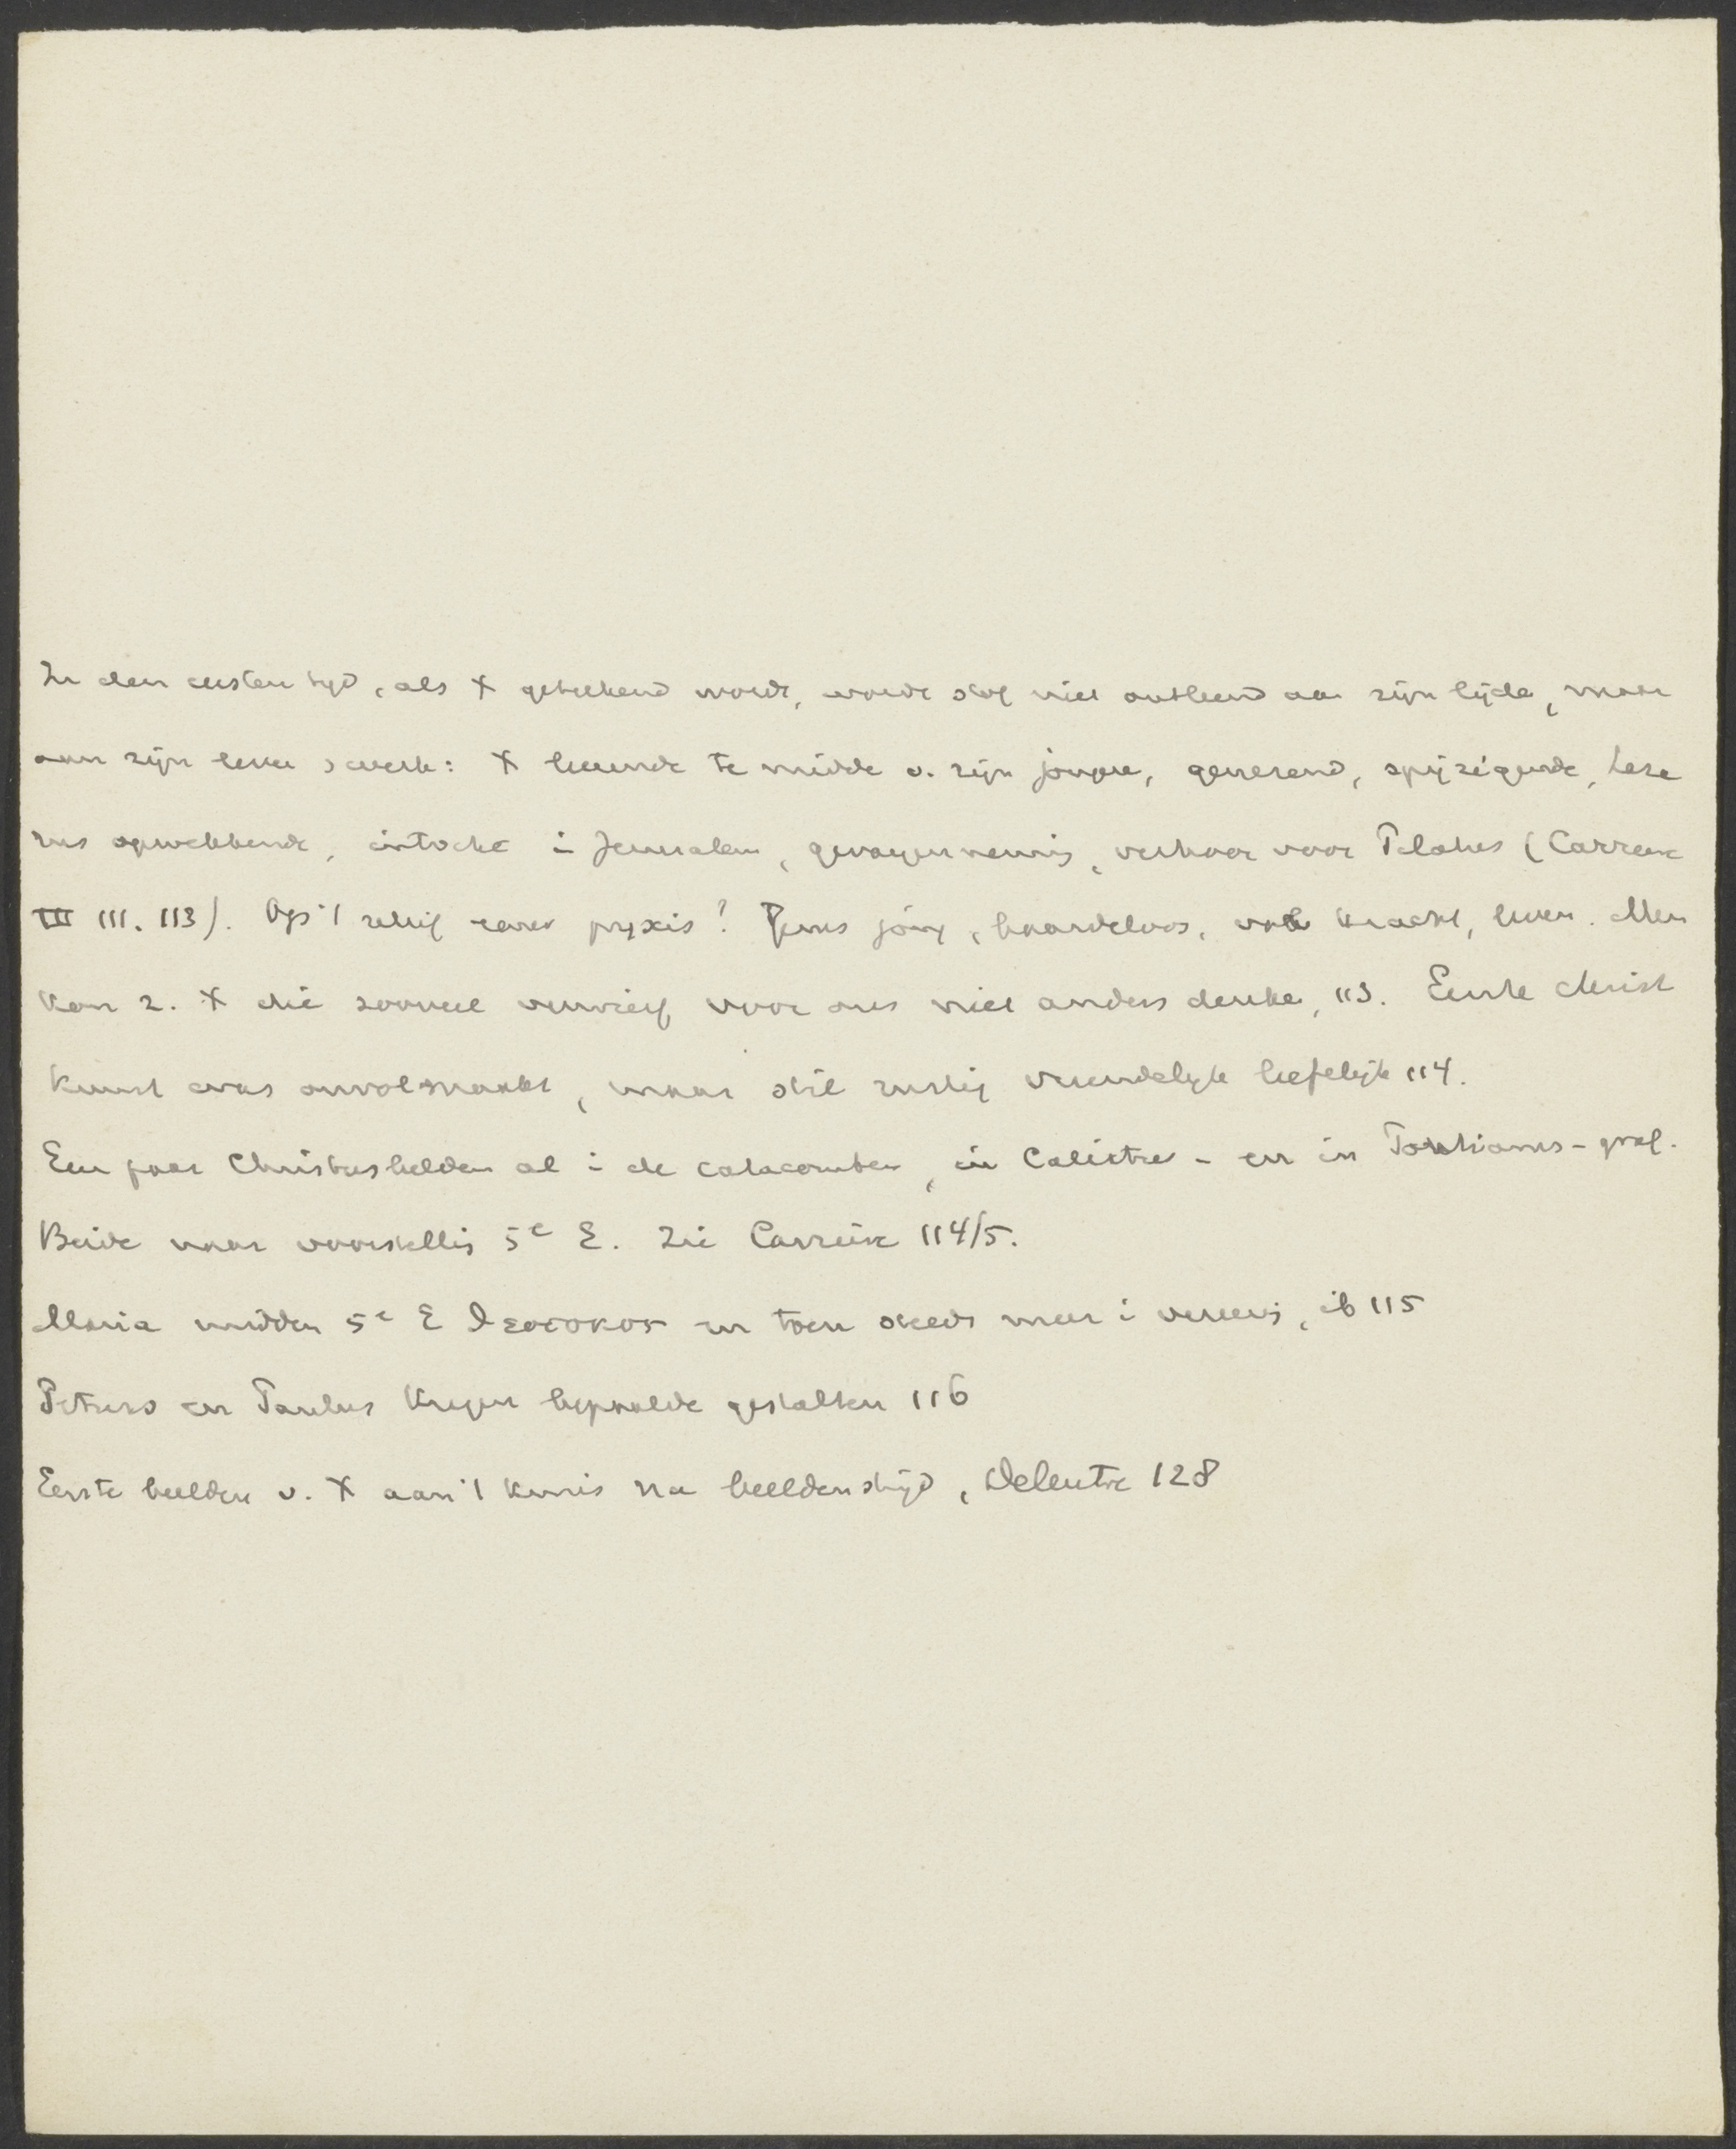 In den eersten tijd, als X geteekend wordt, wordt stof niet ontleend aan zijn lijde, maar
aan zijn leven & werk: X leerende te midde v. zijn jongere, genezend, spijzigende, Laza
rus opwekkende, intocht i Jeruzalem, gevangenneming, verhoor voor Pilatus (Carriere
III. 113). Op 't reliëf eener pyxis! Jezus jong, baardeloos, vol kracht, leven. Men
kan z. X die zooveel verwierf voor ons niet anders denke, 113. Eerste christ
kunst was onvolmaakt, maar stil rustig vriendelijk liefelijk 114.
Een paar Christusbeelden al i de catacomben, in Calixtus - en in Pontianus-graf.
Beide naar voorstellig 5e E. Zie Carrière 114/5.
Maria midden 5e E ϑεοτοκος en toen steeds meer i vereerig, ib 115
Petrus en Paulus krijgen bepaalde gestalten 116
Eerste beelden v. X aan 't kruis na beeldenstrijd, 128